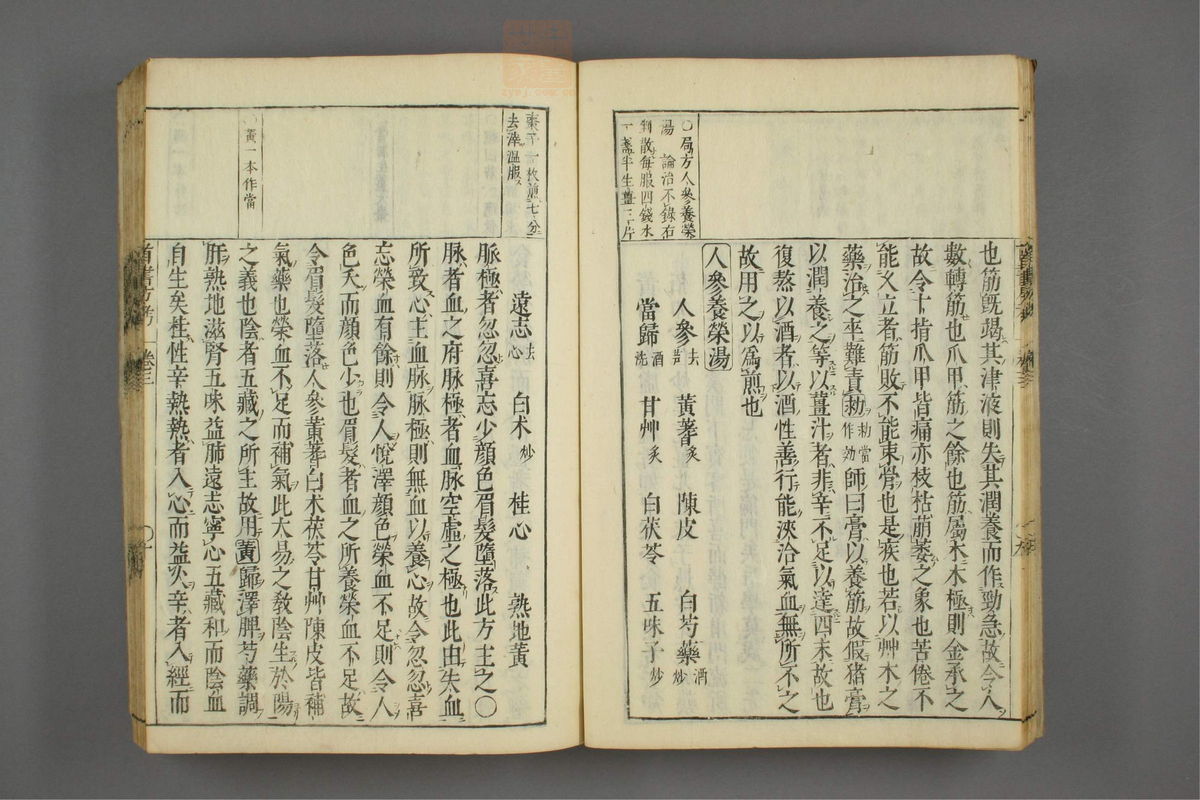 〇局方人參養榮
湯 論治不錄右
㕮散每服四錢水
一盞半生薑三片
也筋旣竭其津液則失其潤養而作勁急故令人
數轉筋也爪甲筋之餘也筋屬木木極則金承之
故令十指爪甲皆痛亦枝枯萠萎之象也苦倦不
能久立者筋敗不能束骨也是疾也若以艸木之
藥治之卒難責勑勑當作効師曰膏以養筋故假猪膏
以潤養之等以薑汁者非辛不足以達四末故也
復熬以酒者以酒性善行能浹洽氣血無所不之
故用之以爲煎也
人參養榮湯
人參去芦 黃蓍炙 陳皮 白芍藥酒炒
當歸酒洗 甘艸炙 白茯苓 五味子炒
棗子一枚煎七分
去滓溫服
〇黃一本作當
遠志去心 白术炒 桂心 熟地黃
脈極者忽忽喜忘少顏色眉髮墮落此方主之〇
脉者血之府脉極者血脉空虛之極也此由失血
所致心主血脉脉極則無血以養心故令忽忽喜
忘榮血有餘則令人悅澤顏色榮血不足則令人
色夭而顏色少也眉髮者血之所養榮血不足故
令眉髮墮落人參黃蓍白术茯苓甘艸陳皮皆補
氣藥也榮血不足而補氣此大易之敎陰生於陽
之義也陰者五藏之所主故用黃歸澤脾芍藥調
肝熟地滋腎五味益肺遠志寧心五藏和而陰血
自生矣桂性辛熱熱者入心而益火辛者入經而
首書方考 卷三 〇十